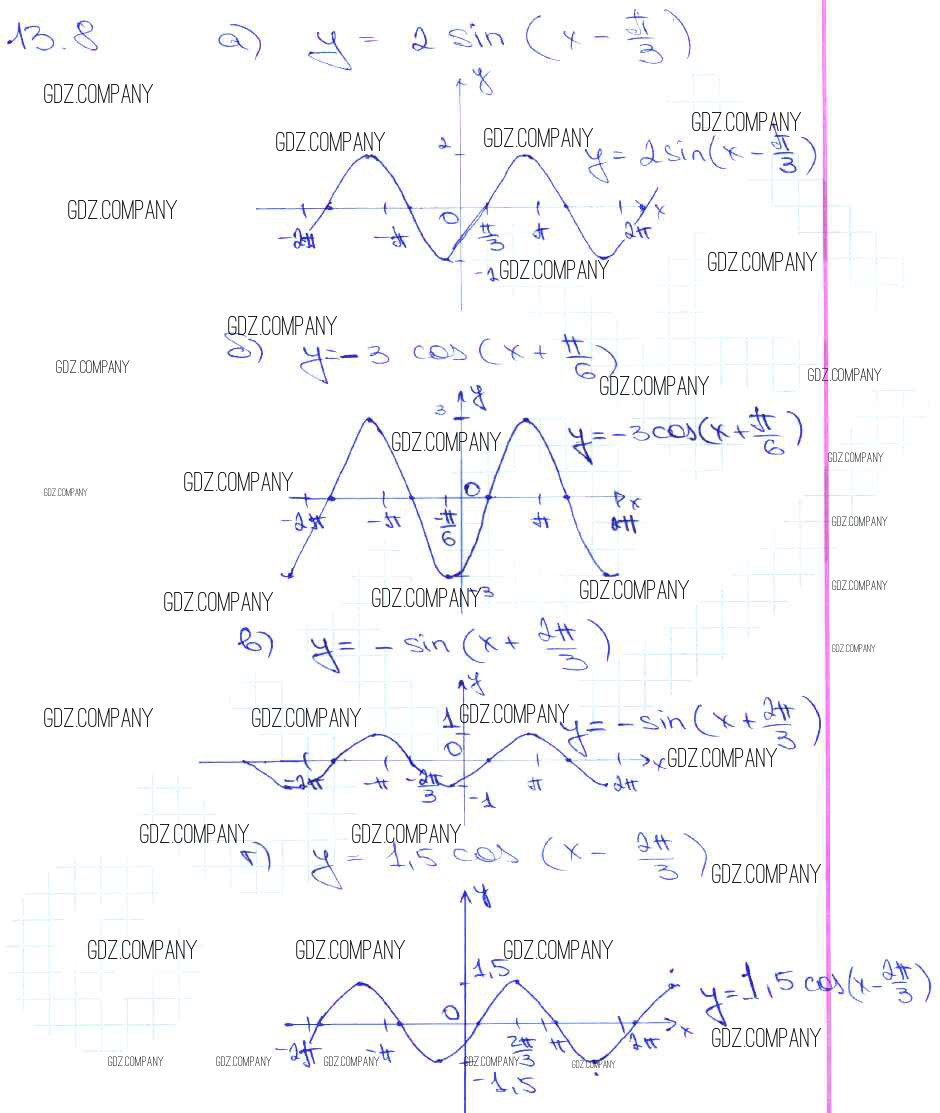 13.8 а) y = 2 sin (x - π/3)
GDZ.COMPANY
y
GDZ.COMPANY GDZ.COMPANY GDZ.COMPANY
2 y = 2sin(x - π/3)
GDZ.COMPANY
-2π -π 0 π/3 π 2π x
-2 GDZ.COMPANY GDZ.COMPANY
GDZ.COMPANY
б) y = -3 cos (x + π/6)
GDZ.COMPANY GDZ.COMPANY GDZ.COMPANY
3 y
GDZ.COMPANY y = -3cos(x + π/6)
GDZ.COMPANY
GDZ.COMPANY GDZ.COMPANY 0
-2π -π -π/6 π 2π x
GDZ.COMPANY
GDZ.COMPANY GDZ.COMPANY -3 GDZ.COMPANY GDZ.COMPANY
в) y = - sin (x + 2π/3)
GDZ.COMPANY
y
GDZ.COMPANY GDZ.COMPANY 1 GDZ.COMPANY y = -sin(x + 2π/3)
0
-2π -π -2π/3 π 2π x GDZ.COMPANY
-1
GDZ.COMPANY GDZ.COMPANY
г) y = 1,5 cos (x - 2π/3)
GDZ.COMPANY
y
GDZ.COMPANY GDZ.COMPANY GDZ.COMPANY
1,5 y = 1,5 cos(x - 2π/3)
0
-2π -π 2π/3 π 2π x GDZ.COMPANY
GDZ.COMPANY GDZ.COMPANY GDZ.COMPANY GDZ.COMPANY GDZ.COMPANY
-1,5